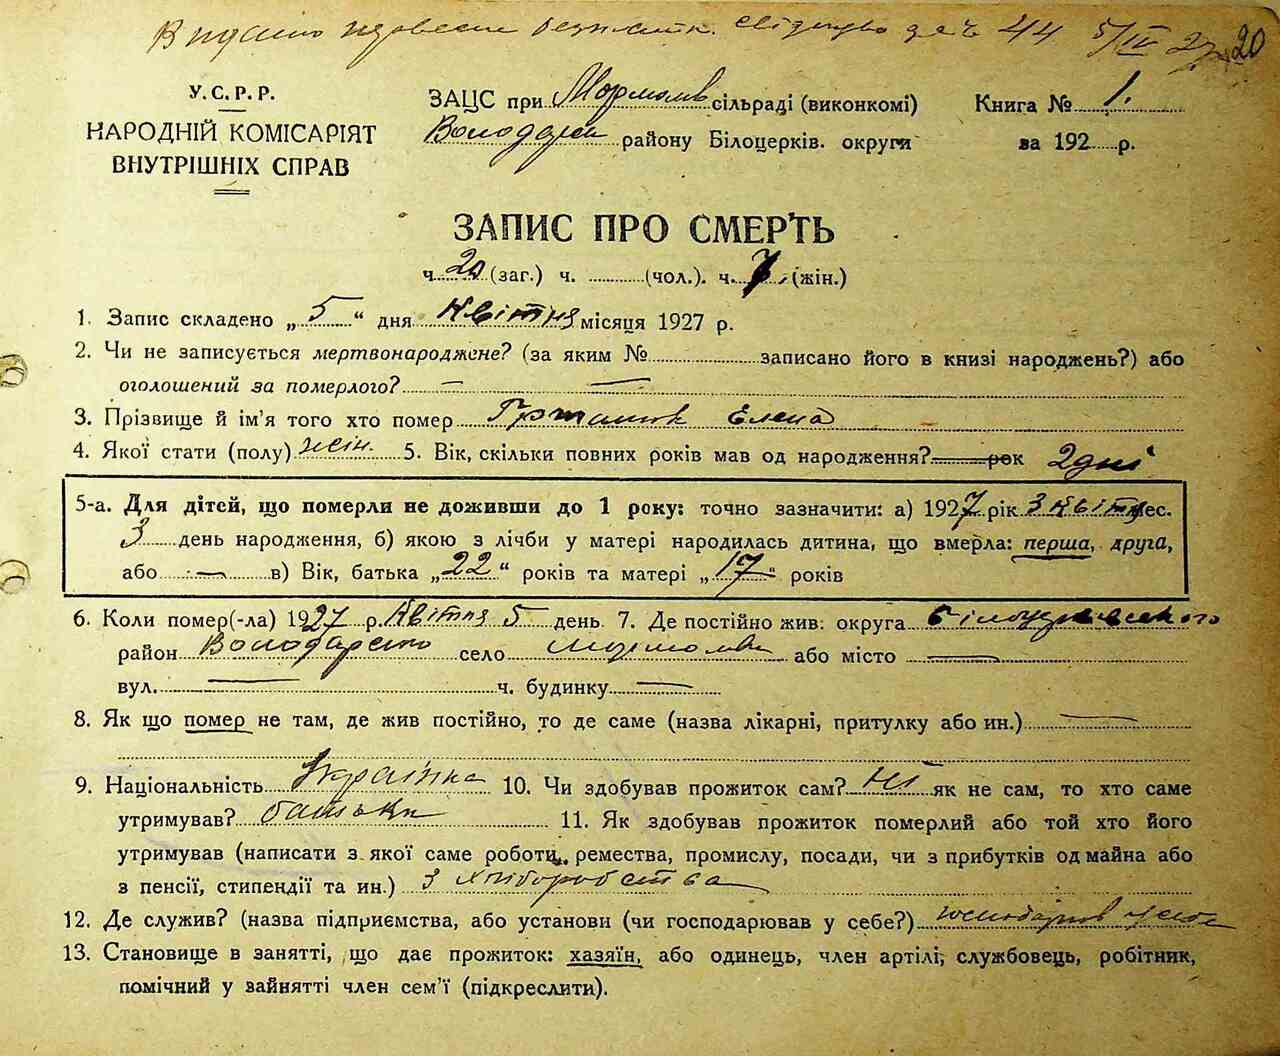 Видано безплатн. свідоцтво за ч 44 5/IV 27
20
У.С.Р.Р.
НАРОДНІЙ КОМІСАРІЯТ
ВНУТРІШНІХ СПРАВ
ЗАЦС при сільраді (виконкомі)
Володарк району Білоцерків. округи
Книга № 1.
за 192 р.
ЗАПИС ПРО СМЕРТЬ
ч. 20 (заг.) ч. (чол.). ч. 7. (жін.)
1. Запис складено „ 5 “ дня Квітня місяця 1927 р.
2. Чи не записується мертвонароджене? (за яким № записано його в книзі народжень?) або
оголошений за померлого? — —
3. Прізвище й ім'я того хто помер Елена
4. Якої стати (полу) жін. 5. Вік, скільки повних років мав од народження? рок 2 дні
5-а. Для дітей, що померли не доживши до 1 року: точно зазначити: а) 1927 рік 3 Квітня мес.
3 день народження, б) якою з лічби у матері народилась дитина, що вмерла: перша, друга,
або — в) Вік, батька „ 22 “ років та матері „ 17 “ років
6. Коли помер(-ла) 1927 р. Квітня 5 день 7. Де постійно жив: округа Білоцерківського
район Володарсько село або місто —
вул. — ч. будинку —
8. Як що помер не там, де жив постійно, то де саме (назва лікарні, притулку або ин.) —
9. Національність Українка 10. Чи здобував прожиток сам? Ні як не сам, то хто саме
утримував? батьки 11. Як здобував прожиток померлий або той хто його
утримував (написати з якої саме роботи, ремества, промислу, посади, чи з прибутків од майна або
з пенсії, стипендії та ин.) З хліборобства
12. Де служив? (назва підприємства, або установи (чи господарював у себе?) господарював у себе
13. Становище в занятті, що дає прожиток: хазяїн, або одинець, член артілі, службовець, робітник,
помічний у зайнятті член сем'ї (підкреслити).